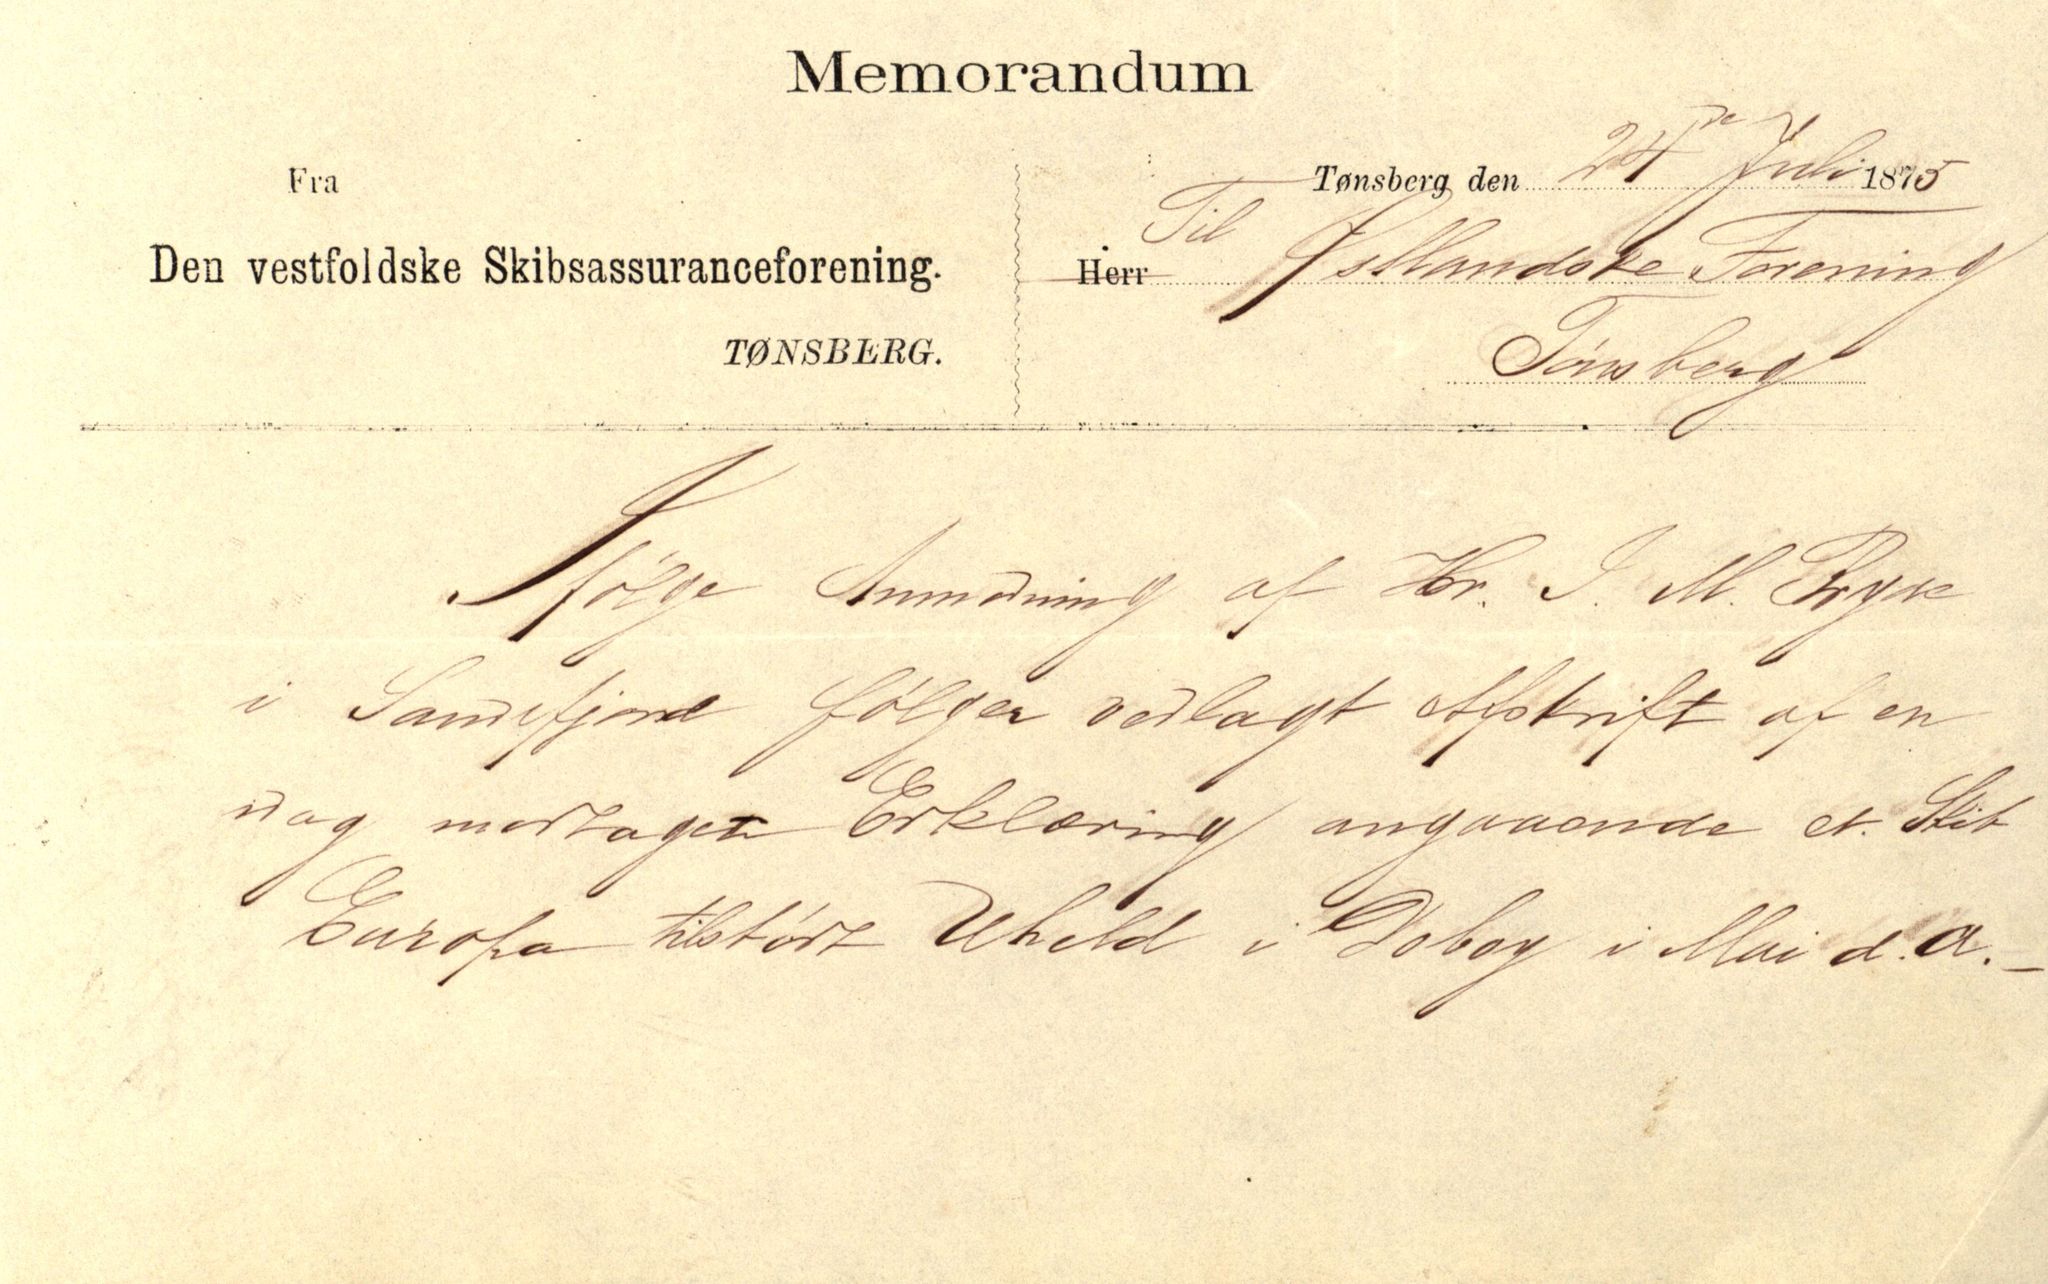 Memorandum
Fra
Den vestfoldske Skibsassuranceforening.
TØNSBERG.
Tønsberg den 24de Juli 1875
Til
Herr Østlandske Forening
Tønsberg
Ifølge Anmodning af Hr. I. M. Bryde
i Sandefjord følger vedlagt Afskrift af en
idag modtagen Erklæring angaaende et Skib
Europa tilstødt Uheld i Doboy i Mai d. A. –